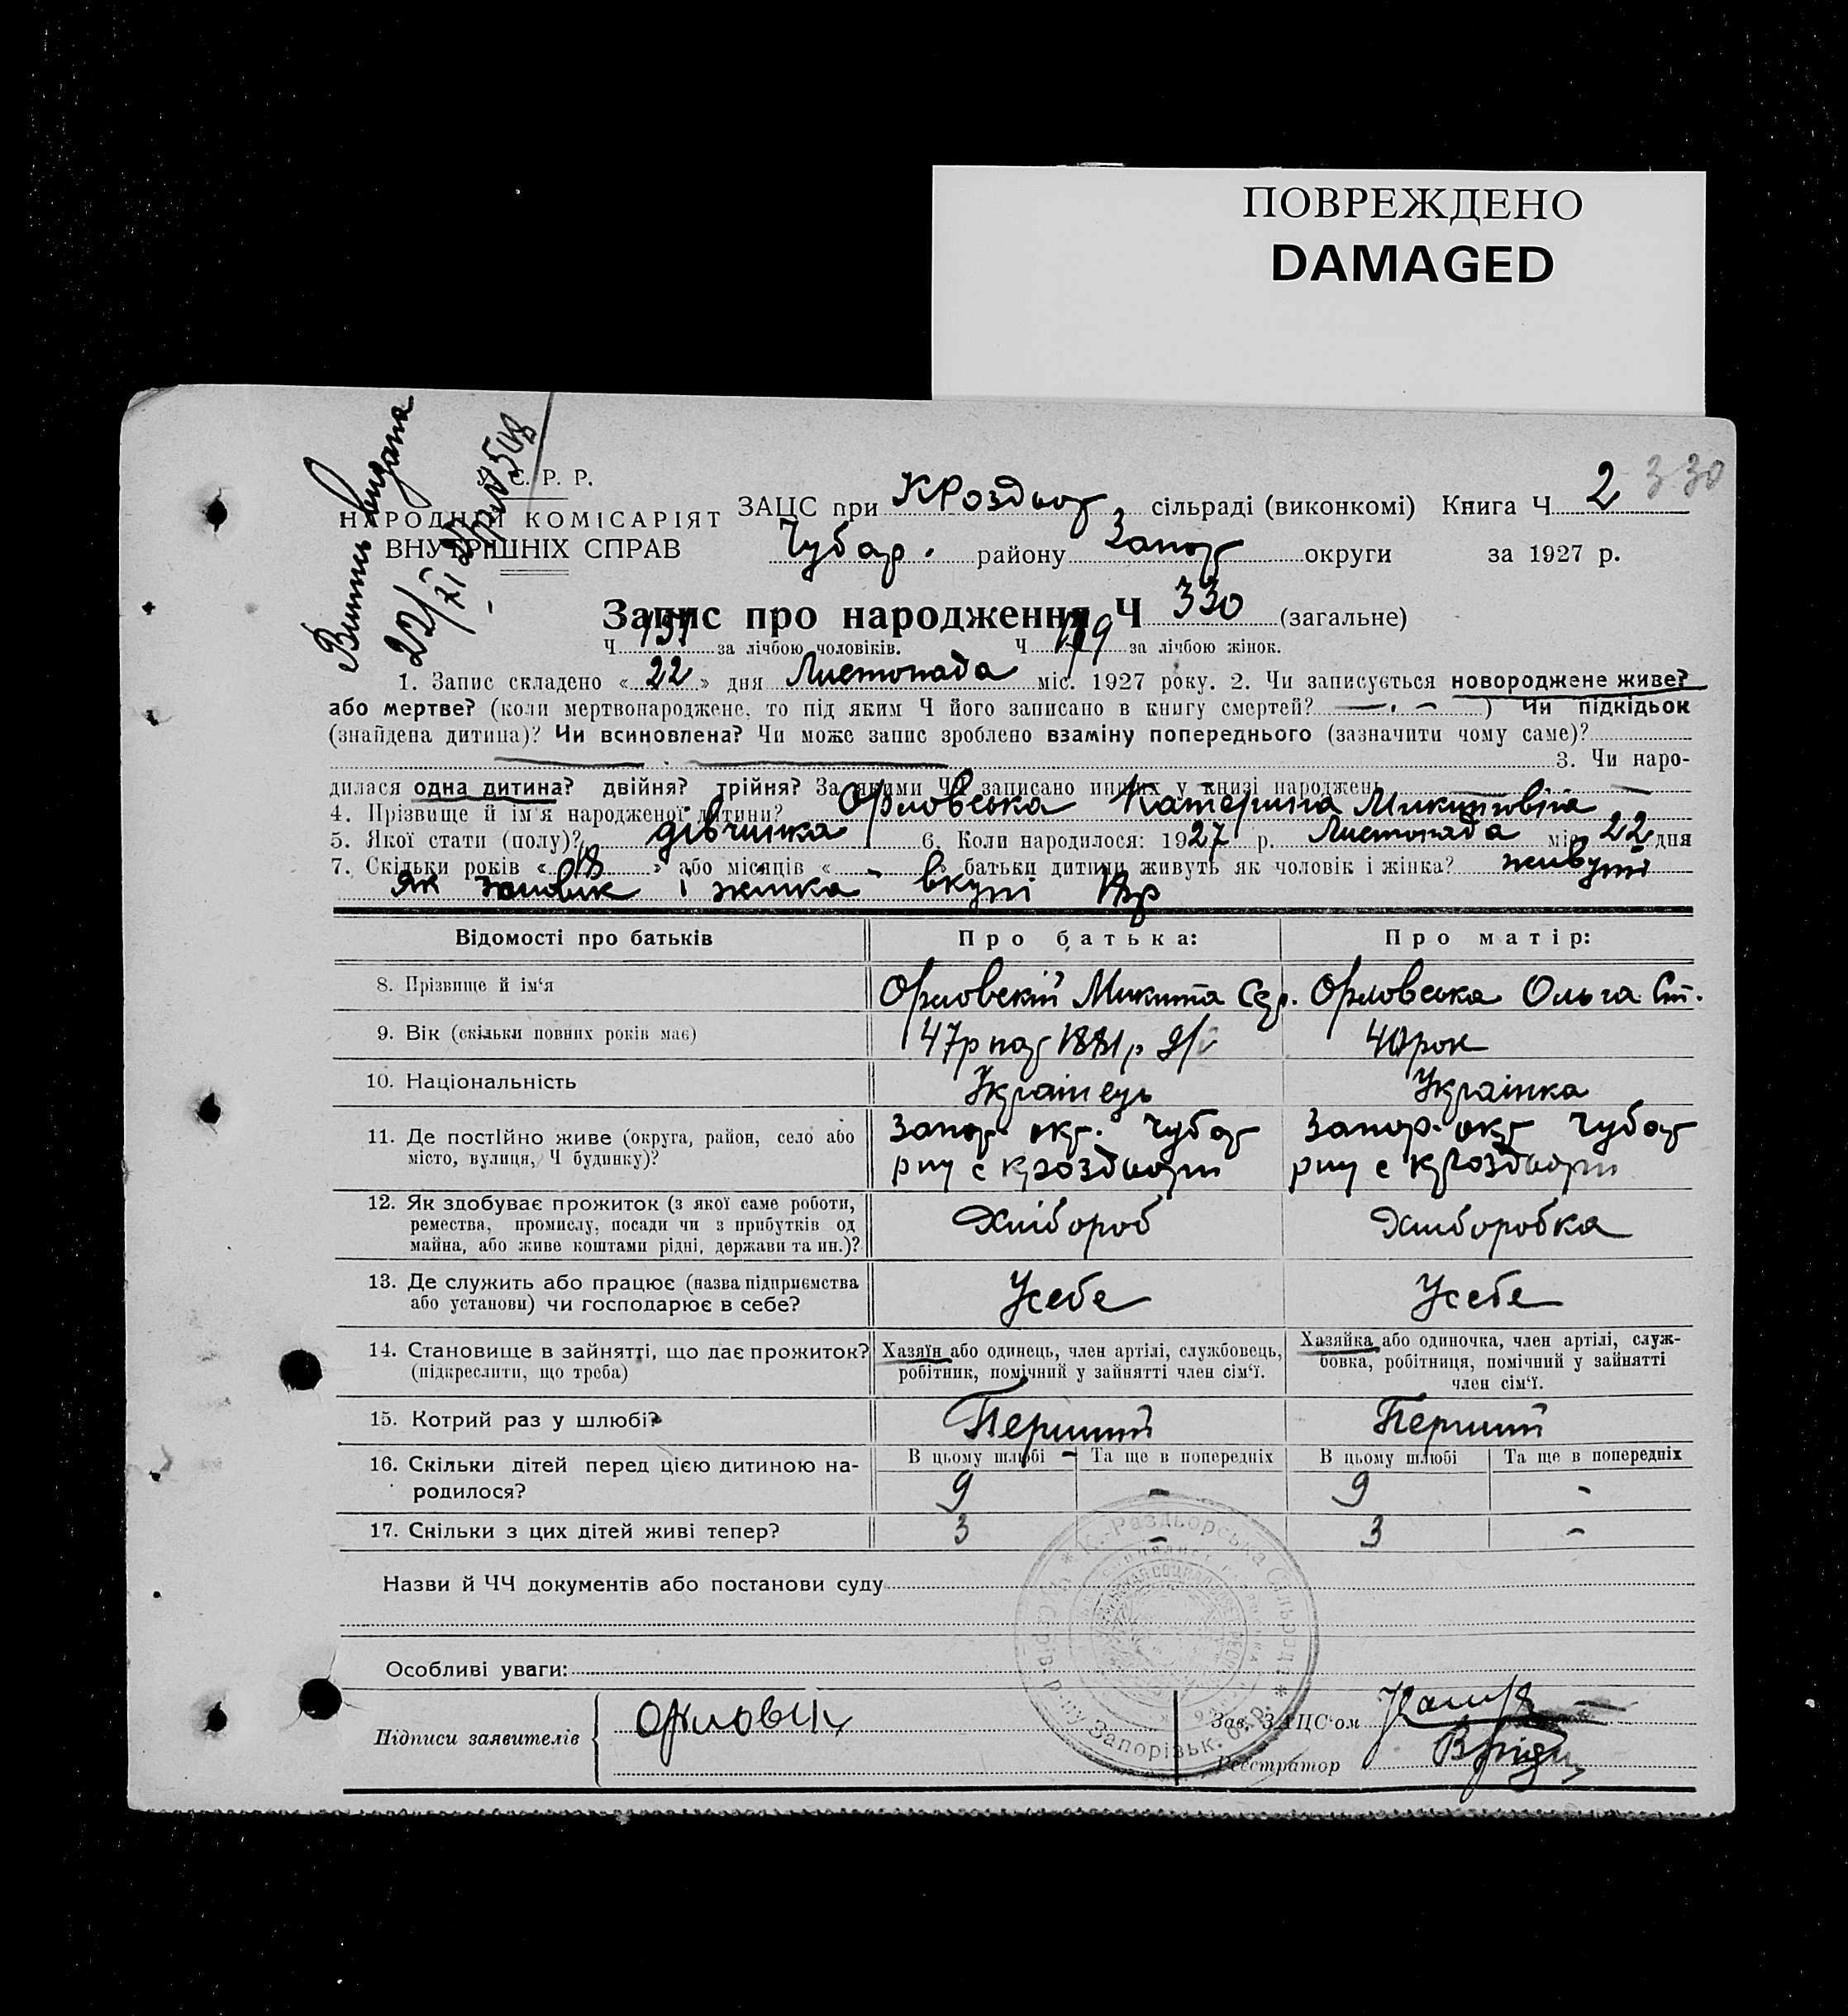 ПОВРЕЖДЕНО
DAMAGED
Випись видана
У. С. Р. Р.
НАРОДНІЙ КОМІСАРІЯТ
ВНУТРІШНІХ СПРАВ
ЗАЦС при КРоздьор сільраді (виконкомі) Книга Ч 2 330
Чубар. району Запор округи за 1927 р.
Запис про народження Ч 330 (загальне)
Ч 151 за лічбою чоловіків. Ч 179 за лічбою жінок.
1. Запис складено « 22 » дня Листопада міс. 1927 року. 2. Чи записується новороджене живе?
або мертве? (коли мертвонароджене, то під яким Ч його записано в книгу смертей? — . - ) Чи підкідьок
(знайдена дитина)? Чи всиновлена? Чи може запис зроблено взаміну попереднього (зазначити чому саме)?
3. Чи наро-
дилася одна дитина? двійня? трійня? За якими ЧЧ записано инших у книзі народжень
4. Прізвище й ім'я народженої дитини? Орловська Катерина Микитовна
5. Якої стати (полу)? дівчинка 6. Коли народилося: 1927 р. Листопада міс. 22 дня
7. Скільки років « 18 » або місяців « - » батьки дитини живуть як чоловік і жінка? живуть
як чоловік і жинка вкупі 18р
Відомості про батьків Про батька: Про матір:
8. Прізвище й ім'я Орловскій Микита Сер. Орловська Ольга Ст.
9. Вік (скільки повних років має) 47р 1881р 40рок
10. Національність Українець Українка
11. Де постійно живе (округа, район, село або Запор. окр. Чубар Запор. окр Чубар
місто, вулиця, Ч будинку)? рну с Кроздьори рну с Кроздьори
12. Як здобуває прожиток (з якої саме роботи,
ремества, промислу, посади чи з прибутків од Хлібороб Хлиборобка
майна, або живе коштами рідні, держави та ин.)?
13. Де служить або працює (назва підприємства Усебе Усебе
або установи) чи господарює в себе?
14. Становище в зайнятті, що дає прожиток? Хазяїн або одинець, член артілі, службовець, Хазяйка або одиночка, член артілі, служ-
(підкреслити, що треба) робітник, помічний у зайнятті член сім'ї. бовка, робітниця, помічний у зайнятті
член сім'ї.
15. Котрий раз у шлюбі? Перший Перший
16. Скільки дітей перед цією дитиною на- В цьому шлюбі Та ще в попередніх В цьому шлюбі Та ще в попередніх
родилося? 9 - 9 -
17. Скільки з цих дітей живі тепер? 3 - 3 -
Назви й ЧЧ документів або постанови суду
Особливі уваги:
К.-Раздьорська Сільрада * р-ну Запорізьк. окр.
Підписи заявителів Орловск
Зав. ЗАЦС'ом
Реєстратор